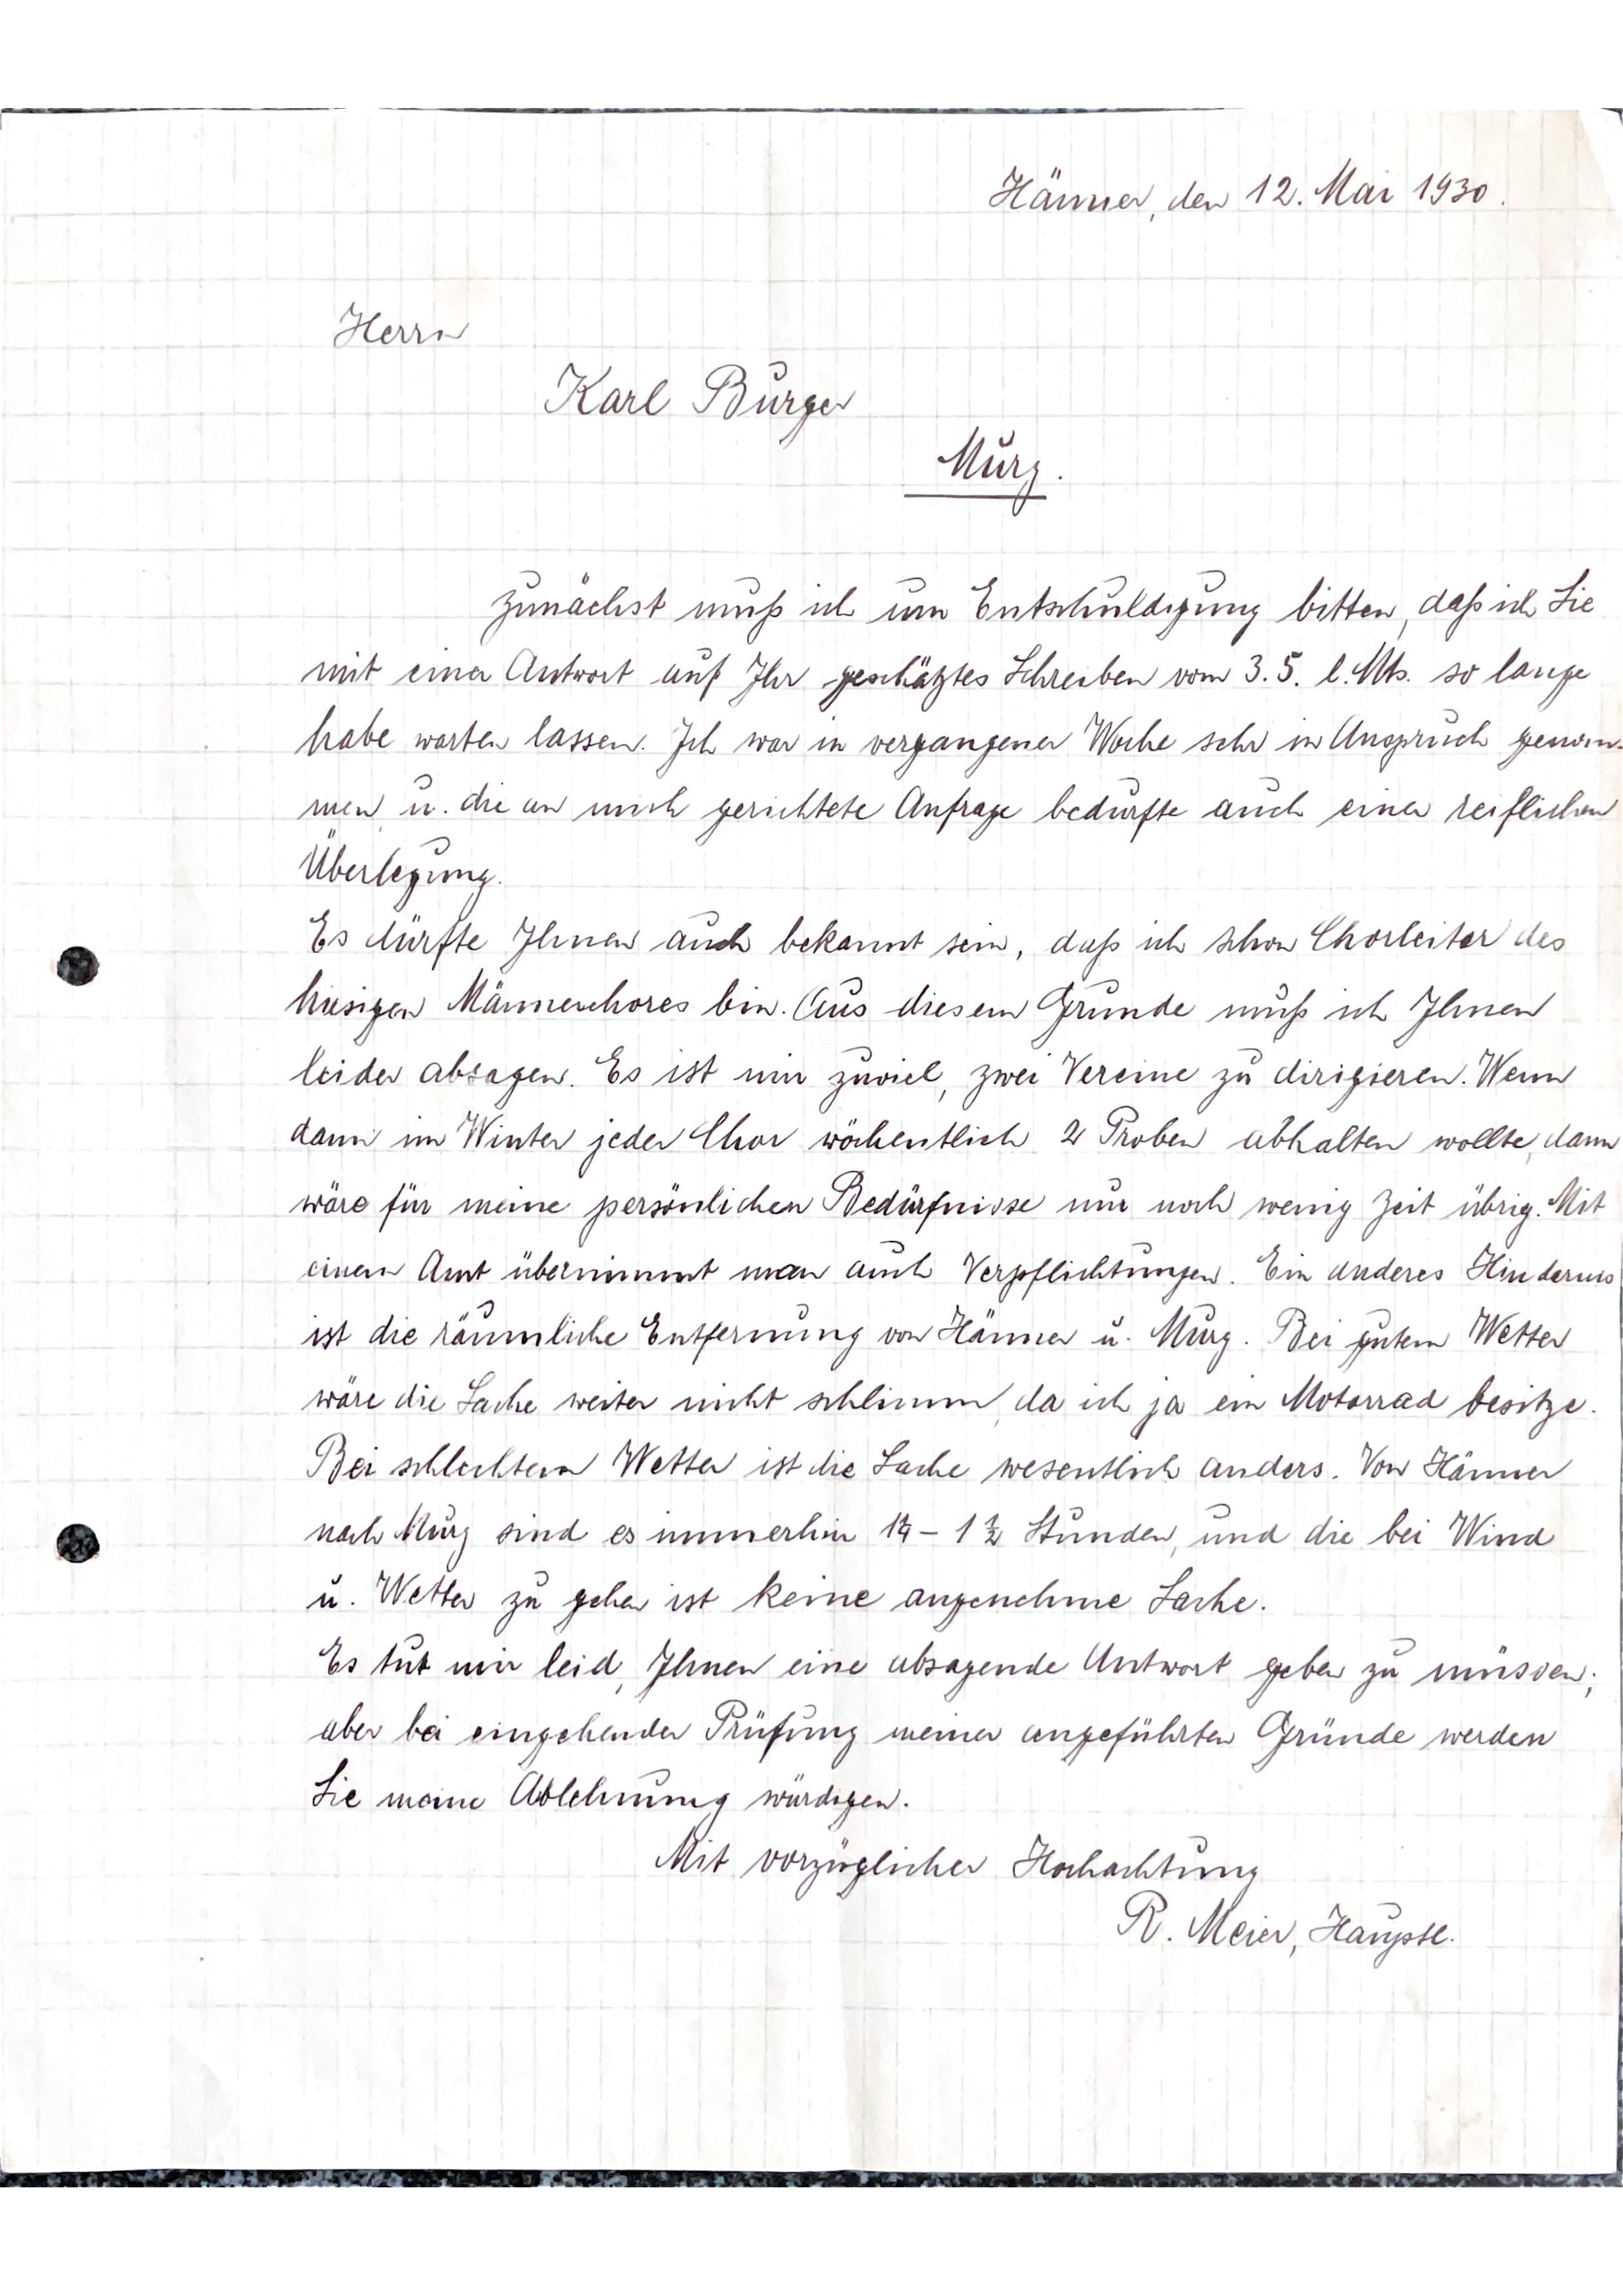 Hänner, den 12. Mai 1930.
Herrn
Karl Burger
Murg.
Zunächst muß ich um Entschuldigung bitten, daß ich Sie
mit einer Antwort auf Ihr geschätztes Schreiben vom 3.5. l. Mts. so lange
habe warten lassen. Ich war in vergangener Woche sehr in Anspruch genom-
men u. die an mich gerichtete Anfrage bedurfte auch einer reiflichen
Überlegung.
Es dürfte Ihnen auch bekannt sein, daß ich schon Chorleiter des
hiesigen Männerchores bin. Aus diesem Grunde muß ich Ihnen
leider absagen. Es ist mir zuviel, zwei Vereine zu dirigieren. Wenn
dann im Winter jeder Chor wöchentlich 2 Proben abhalten wollte, dann
wäre für meine persönlichen Bedürfnisse nur noch wenig Zeit übrig. Mit
einem Amt übernimmt man auch Verpflichtungen. Ein anderes Hindernis
ist die räumliche Entfernung von Hänner u. Murg. Bei gutem Wetter
wäre die Sache weiter nicht schlimm, da ich ja ein Motorrad besitze.
Bei schlechtem Wetter ist die Sache wesentlich anders. Von Hänner
nach Murg sind es immerhin 1¼ – 1½ Stunden, und die bei Wind
u. Wetter zu gehen ist keine angenehme Sache.
Es tut mir leid, Ihnen eine absagende Antwort geben zu müssen;
aber bei eingehender Prüfung meiner angeführten Gründe werden
Sie meine Ablehnung würdigen.
Mit vorzüglicher Hochachtung
R. Meier, Hauptl.